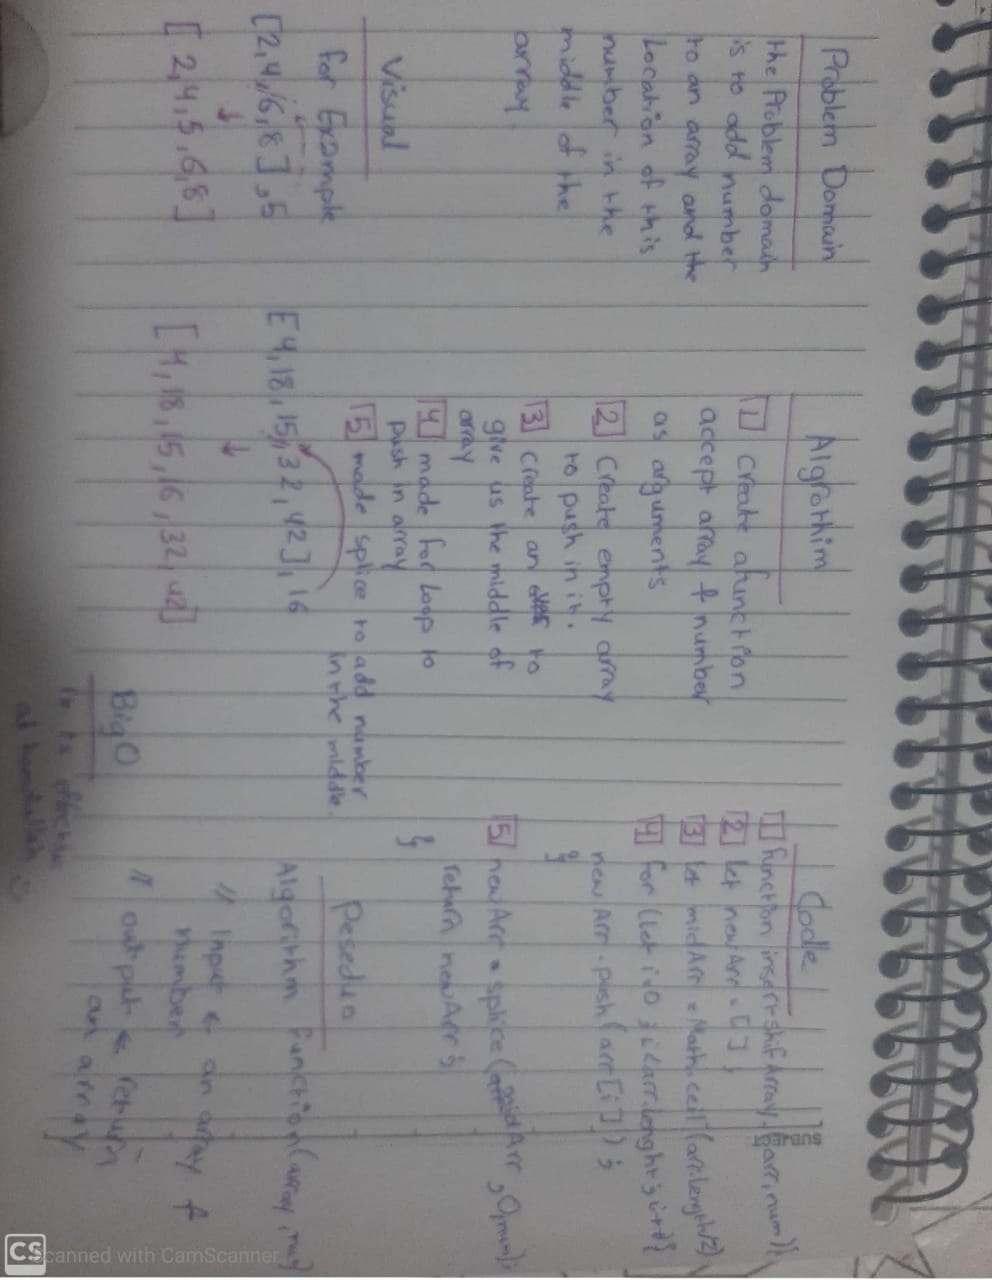 Problem Domain
the Problem domain
is to add number
to an array and the
Location of this
number in the
middle of the
array.
Visual
for Example
[2,4,6,8],5
[2,4,5,6,8]
Algrothim
1 create afunction
accept array & number
as arguments
2 Create empty array
to push in it.
3 create an to
give us the middle of
array
4 made for Loop to
push in array
5 made splice to add number
in the middle.
[4,18,15,32,42],16
[4,18,15,16,32,42]
Big O
Code
1 function insertshifArray(arr,num){
2 let newArr = [];
3 let midArr = Math.ceil(arr.lenght/2)
4 for (let i=0; i<arr.lenght; i++){
newArr.push(arr[i]);
}
5 newArr.splice(midArr,0,num);
return newArr;
}
Peseduo
Algorithm function(array,
// Input ← an array &
number
// output ← return
an array
subject
CS Scanned with CamScanner